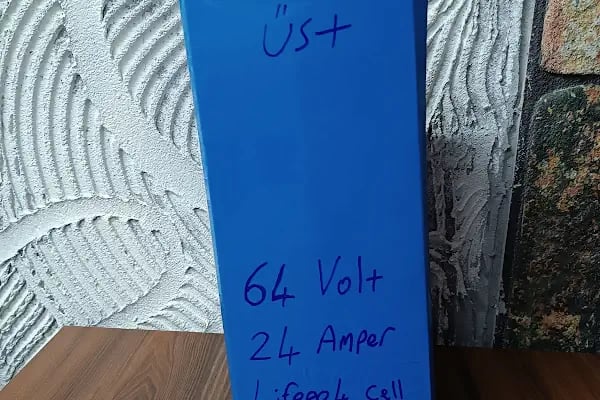 Üst
64 Volt
24 Amper
Lifepo4 Cell